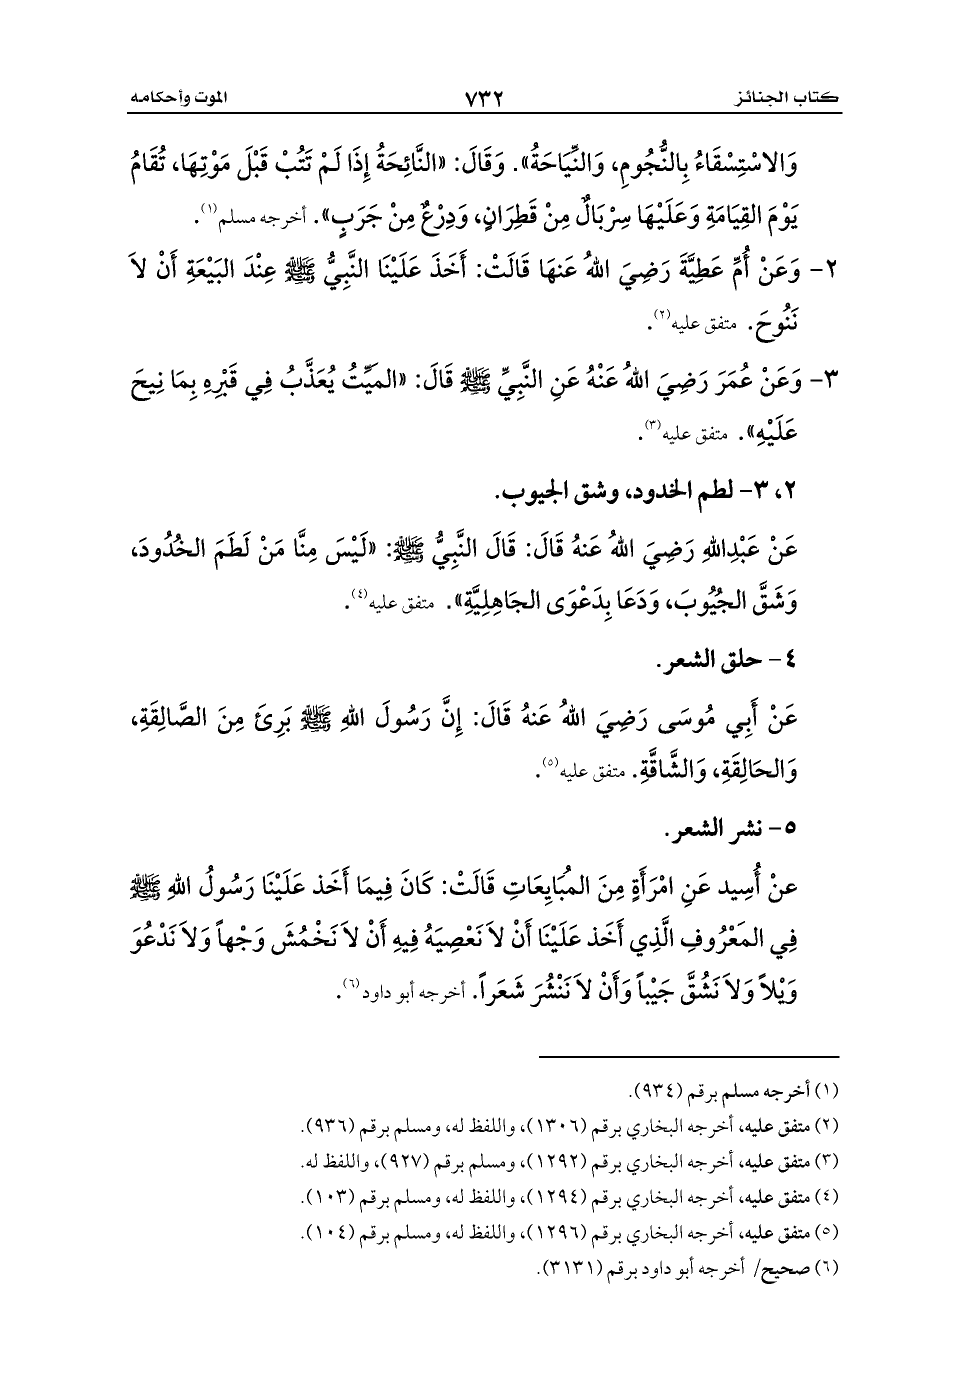 كتاب الجنائز ٧٣٢ الموت وأحكامه
وَالاسْتِسْقَاءُ بِالنُّجُومِ، وَالنِّيَاحَةُ». وَقَالَ: «النَّائِحَةُ إِذَا لَمْ تَتُبْ قَبْلَ مَوْتِهَا، تُقَامُ
يَوْمَ القِيَامَةِ وَعَلَيْهَا سِرْبَالٌ مِنْ قَطِرَانٍ، وَدِرْعٌ مِنْ جَرَبٍ». أخرجه مسلم(١).
٢- وَعَنْ أُمِّ عَطِيَّةَ رَضِيَ اللهُ عَنهَا قَالَتْ: أَخَذَ عَلَيْنَا النَّبِيُّ ﷺ عِنْدَ البَيْعَةِ أَنْ لاَ
نَنُوحَ. متفق عليه(٢).
٣- وَعَنْ عُمَرَ رَضِيَ اللهُ عَنْهُ عَنِ النَّبِيِّ ﷺ قَالَ: «المَيِّتُ يُعَذَّبُ فِي قَبْرِهِ بِمَا نِيحَ
عَلَيْهِ». متفق عليه(٣).
٢، ٣- لطم الخدود، وشق الجيوب.
عَنْ عَبْدِاللهِ رَضِيَ اللهُ عَنهُ قَالَ: قَالَ النَّبِيُّ ﷺ: «لَيْسَ مِنَّا مَنْ لَطَمَ الخُدُودَ،
وَشَقَّ الجُيُوبَ، وَدَعَا بِدَعْوَى الجَاهِلِيَّةِ». متفق عليه(٤).
٤- حلق الشعر.
عَنْ أَبِي مُوسَى رَضِيَ اللهُ عَنهُ قَالَ: إِنَّ رَسُولَ اللهِ ﷺ بَرِئَ مِنَ الصَّالِقَةِ،
وَالحَالِقَةِ، وَالشَّاقَّةِ. متفق عليه(٥).
٥- نشر الشعر.
عنْ أُسِيد عَنِ امْرَأَةٍ مِنَ المُبَايِعَاتِ قَالَتْ: كَانَ فِيمَا أَخَذ عَلَيْنَا رَسُولُ اللهِ ﷺ
فِي المَعْرُوفِ الَّذِي أَخَذ عَلَيْنَا أَنْ لاَ نَعْصِيَهُ فِيهِ أَنْ لاَ نَخْمُشَ وَجْهاً وَلاَ نَدْعُوَ
وَيْلاً وَلاَ نَشُقَّ جَيْباً وَأَنْ لاَ نَنْشُرَ شَعَراً. أخرجه أبو داود(٦).
(١) أخرجه مسلم برقم (٩٣٤).
(٢) متفق عليه، أخرجه البخاري برقم (١٣٠٦)، واللفظ له، ومسلم برقم (٩٣٦).
(٣) متفق عليه، أخرجه البخاري برقم (١٢٩٢)، ومسلم برقم (٩٢٧)، واللفظ له.
(٤) متفق عليه، أخرجه البخاري برقم (١٢٩٤)، واللفظ له، ومسلم برقم (١٠٣).
(٥) متفق عليه، أخرجه البخاري برقم (١٢٩٦)، واللفظ له، ومسلم برقم (١٠٤).
(٦) صحيح/ أخرجه أبو داود برقم (٣١٣١).